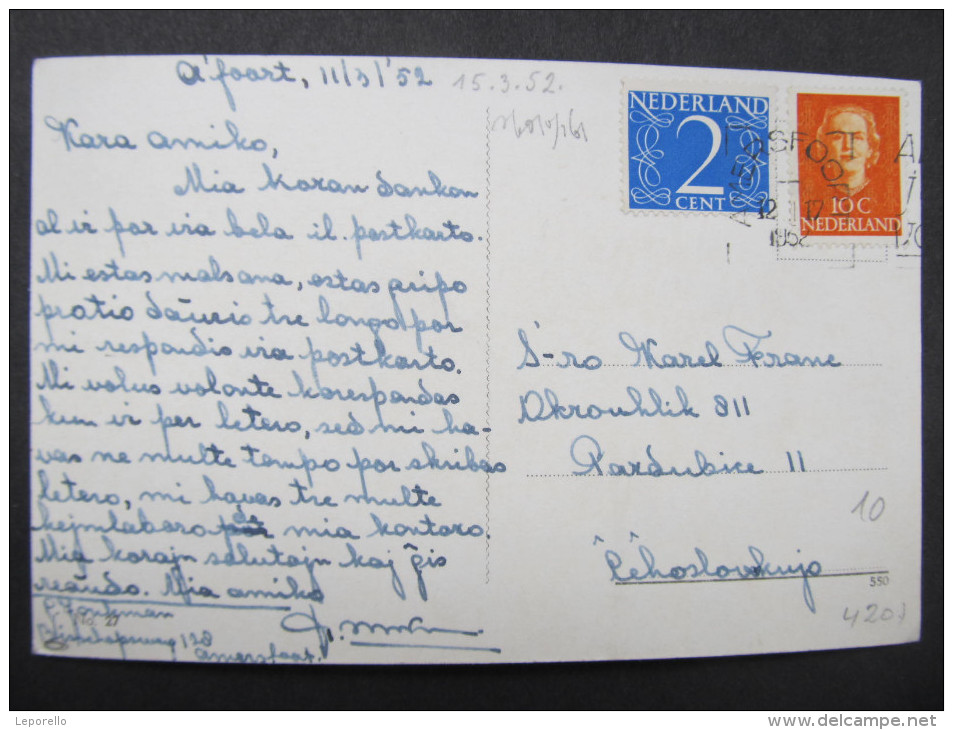 A'foort, 11/3/'52
15.3.52.
Kara amiko,
Mia koran dankon
al vi por via bela il. postkarto.
Mi estas malsana, estas gripo
pratio daŭrio tre longo por
mi respondis via postkarto.
Mi volus volonte korespondas
kun vi per letero, sed mi ha-
vas ne multe tempo por skribas
letero, mi havas tre multe
hejmlaboro de mia kontoro.
Miaj korajn salutajn kaj ĝis
reaŭdo. Mia amiko
128
Amersfoort.
NEDERLAND
2
CENT
10 C
NEDERLAND
AMERSFOORT
12
1952
S-ro Karel Franc
Okrouhlik 811
Pardubice II
Ĉeĥoslovakujo
550
10
4207
Leporello
www.delcampe.net